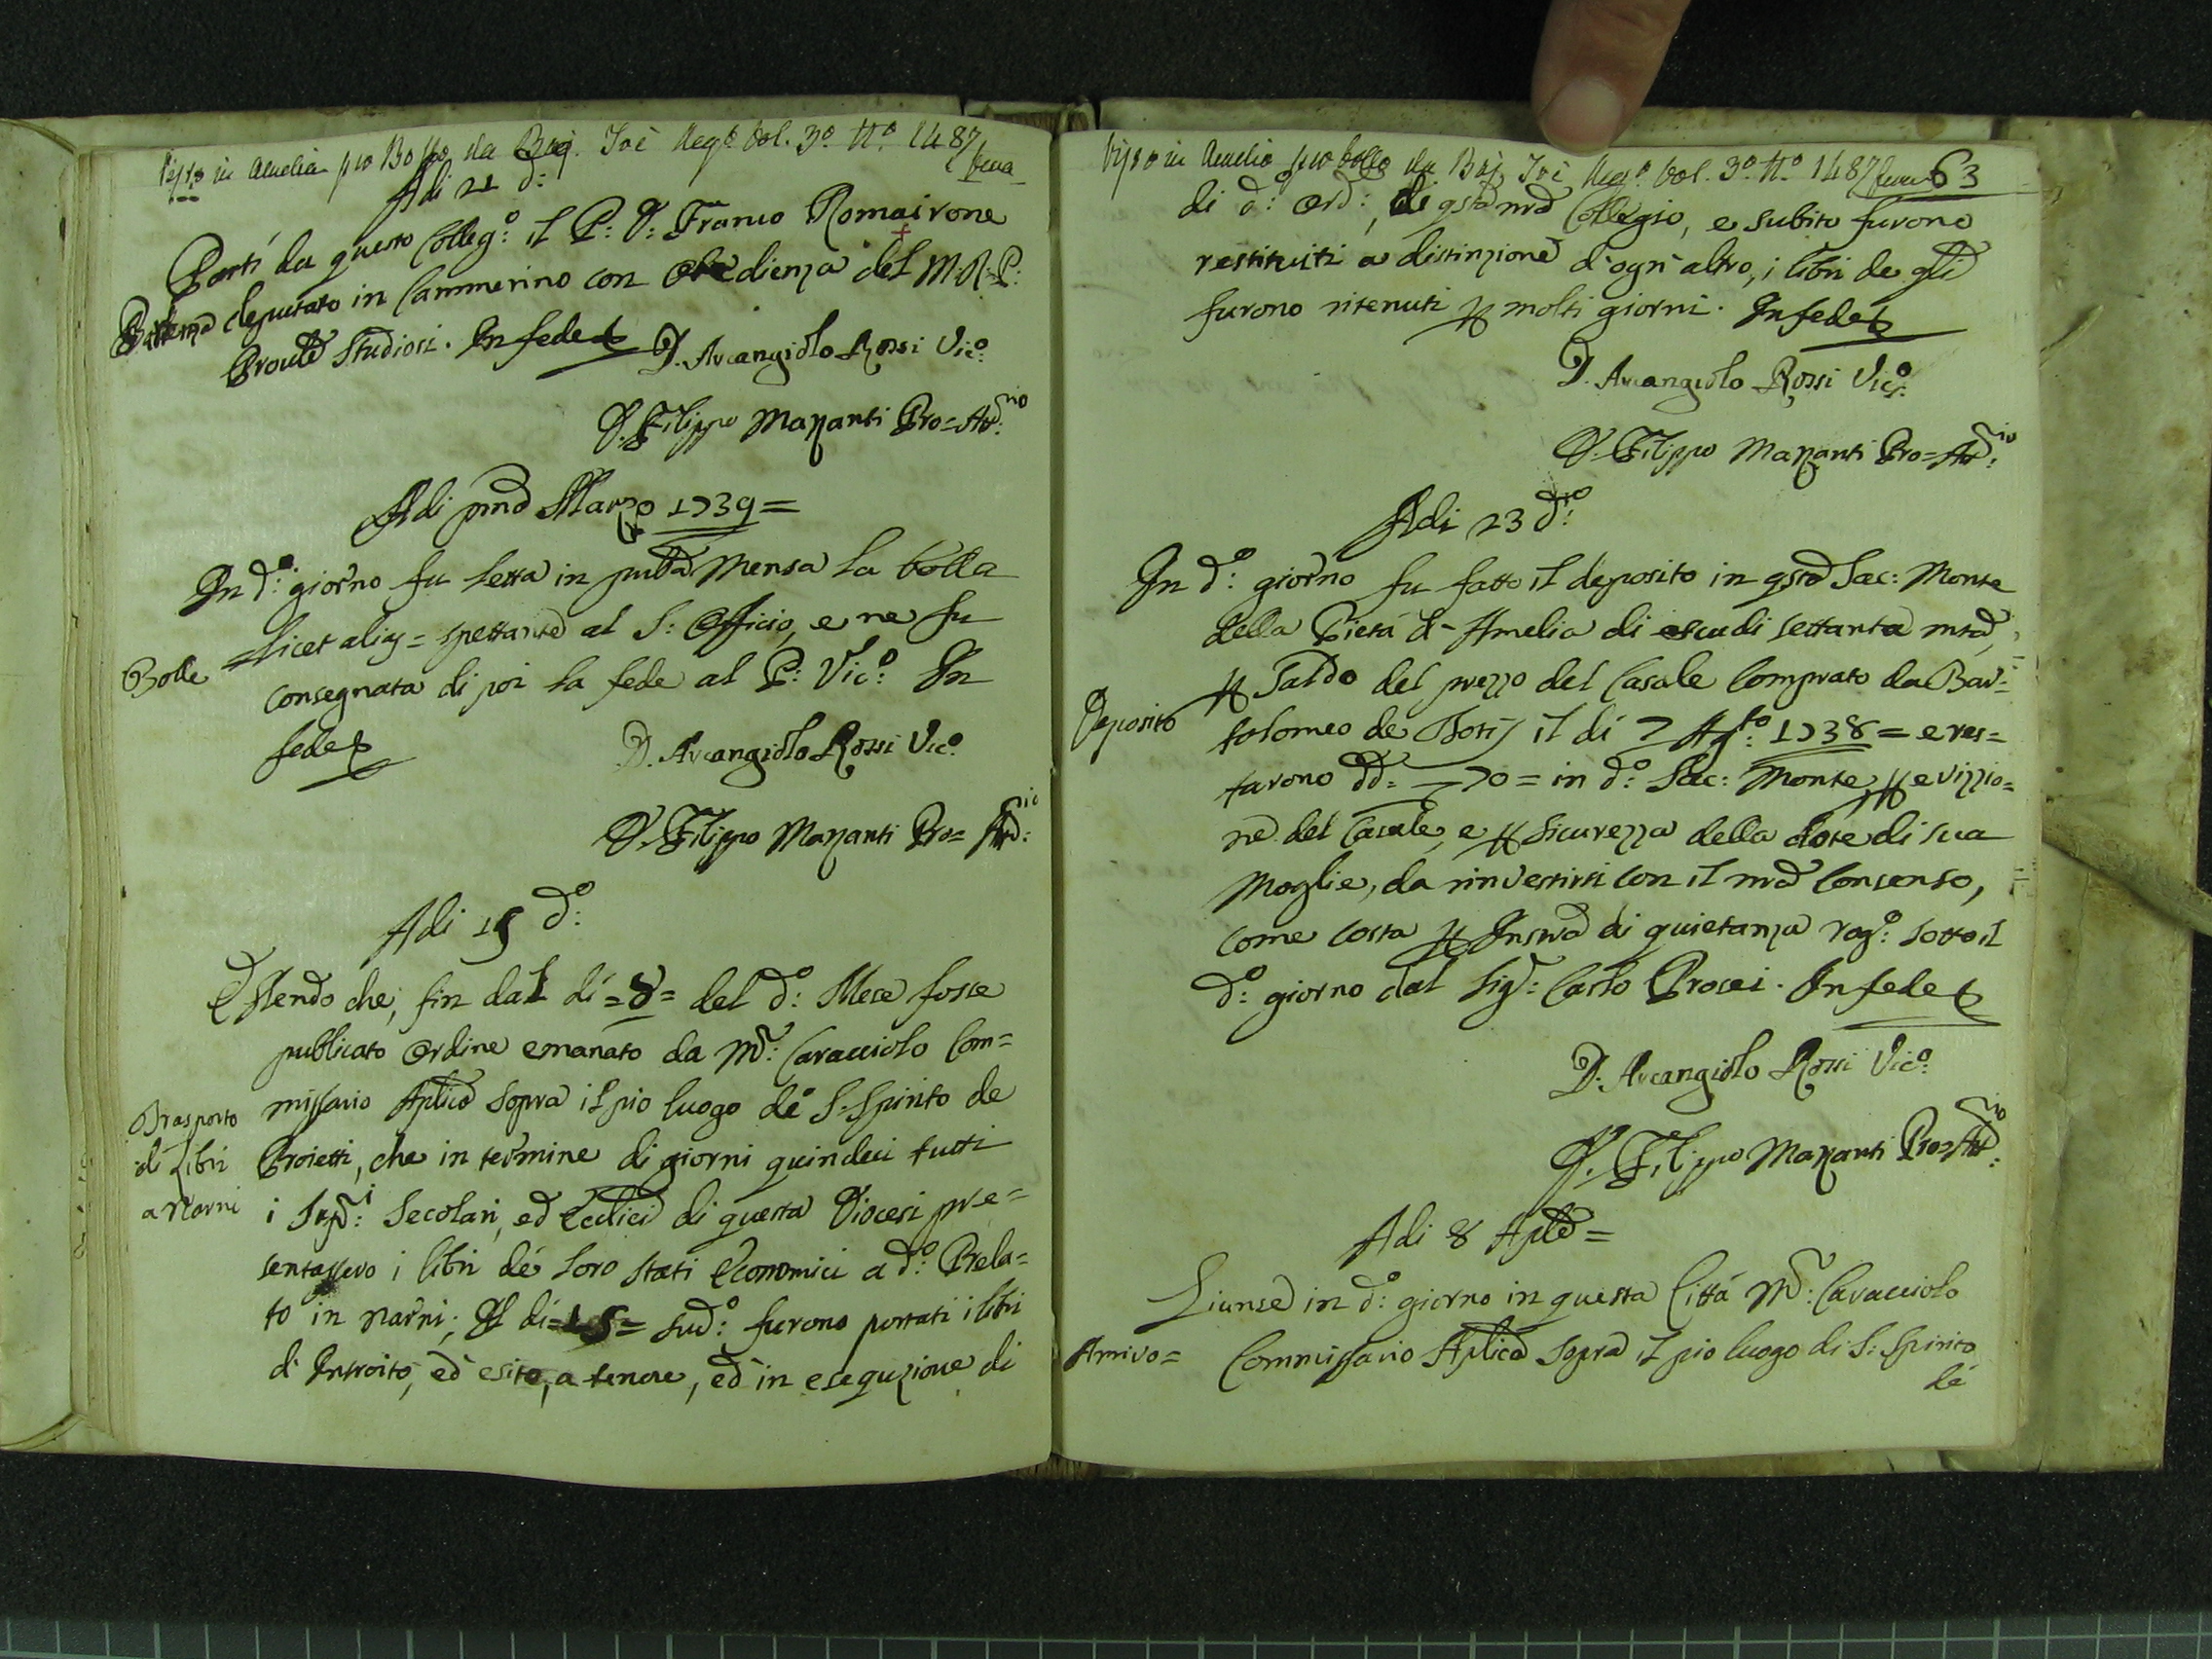 Visto in Amelia pro Bollo da Baj. Tre Reg.º Vol. 3.º N.º 1487
Adi 21 d:
Partì da questo Colleg:º il P: D: Franco Romairone
Partenza
deputato in Cammerino con obedienza del M:R:P:
Proule Studiosi. In fede
D. Arcangiolo Rossi Vic:º
D. Filippo Mazzanti Pro=Att:rio
Adi pmo Marzo 1739=
In d:º giorno fu letta in pubca Mensa la bolla
Bolle
licet alias= spettante al S: Officio, e ne fu
consegnata di poi la fede al P: Vic:º In
fede
D. Arcangiolo Rossi Vic.º
D. Filippo Mazzanti Pro=Att:rio
Adi 15 d:º
Essendo che, fin dal dí =8= del d:º Mese fosse
publicato ordine emanato da Mr: Caracciolo Com=
Trasporto
di Libri
a Narni
missario Aplico sopra il pio luogo de S: Spirito de
Proietti, che in termine di giorni quindeci tutti
i Secolari, ed Ecclici di questa Diocesi pre=
sentassero i libri de loro stati Economici a d:º Prela=
to in Narni; Il dí =15= sud:º furono portati i libri
d'Introito, ed esito, a tenore, ed in esequzione di
Visto in Amelia pro bollo da Baj. Tre Reg.º Vol. 3.º N.º 1487
63
di d:º ord:, di qsto nro Collegio, e subito furono
restituiti a distinzione d'ogn'altro, i libri de qli
furono ritenuti p molti giorni. In fede
D. Arcangiolo Rossi Vic:º
D. Filippo Mazzanti Pro=Att:rio
Adi 23 d:º
In d:º giorno fu fatto il deposito in qsto Sac: Monte
della Pietá d'Amelia di scudi settanta mta,
Deposito
p Saldo del prezzo del Casale Comprato da Bar=
tolomeo de il dí 7 Ag:to 1738= e res=
tarono dd: =70= in d:º Sac: Monte, p evizzio=
ne del Casale, e p sicurezza della dote di sua
Moglie, da rinvestirsi con il nro Consenso,
come costa p Instro di quietanza rog:º sotto il
d:º giorno dal Sigr: Carlo Prosei. In fede
D. Arcangiolo Rossi Vic:º
D. Filippo Mazzanti Pro=Att:rio
Adi 8 Aple=
Giunse in d:º giorno in questa Cittá Mr: Caracciolo
Arrivo=
Commissario Aplico sopra il pio luogo di S: Spirito
de